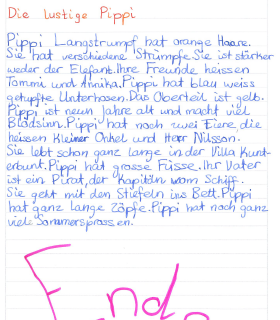 Die lustige Pippi
Pippi Langstrumpf hat orange Haare.
Sie hat verschiedene Strümpfe. Sie ist stärker
weder der Elefant. Ihre Freunde heissen
Tommi und Annika. Pippi hat blau weiss
getupfte Unterhosen. Das Oberteil ist gelb.
Pippi ist neun Jahre alt und macht viel
Blödsinn. Pippi hat noch zwei Tiere die
heissen kleiner Onkel und Herr Nilsson.
Sie lebt schon ganz lange in der Villa Kunt-
erbunt. Pippi hat grosse Füsse. Ihr Vater
ist ein Pirat, der Kapitän vom Schiff.
Sie geht mit den Stiefeln ins Bett. Pippi
hat ganz lange Zöpfe. Pippi hat noch ganz
viele Sommersprossen.
Ende